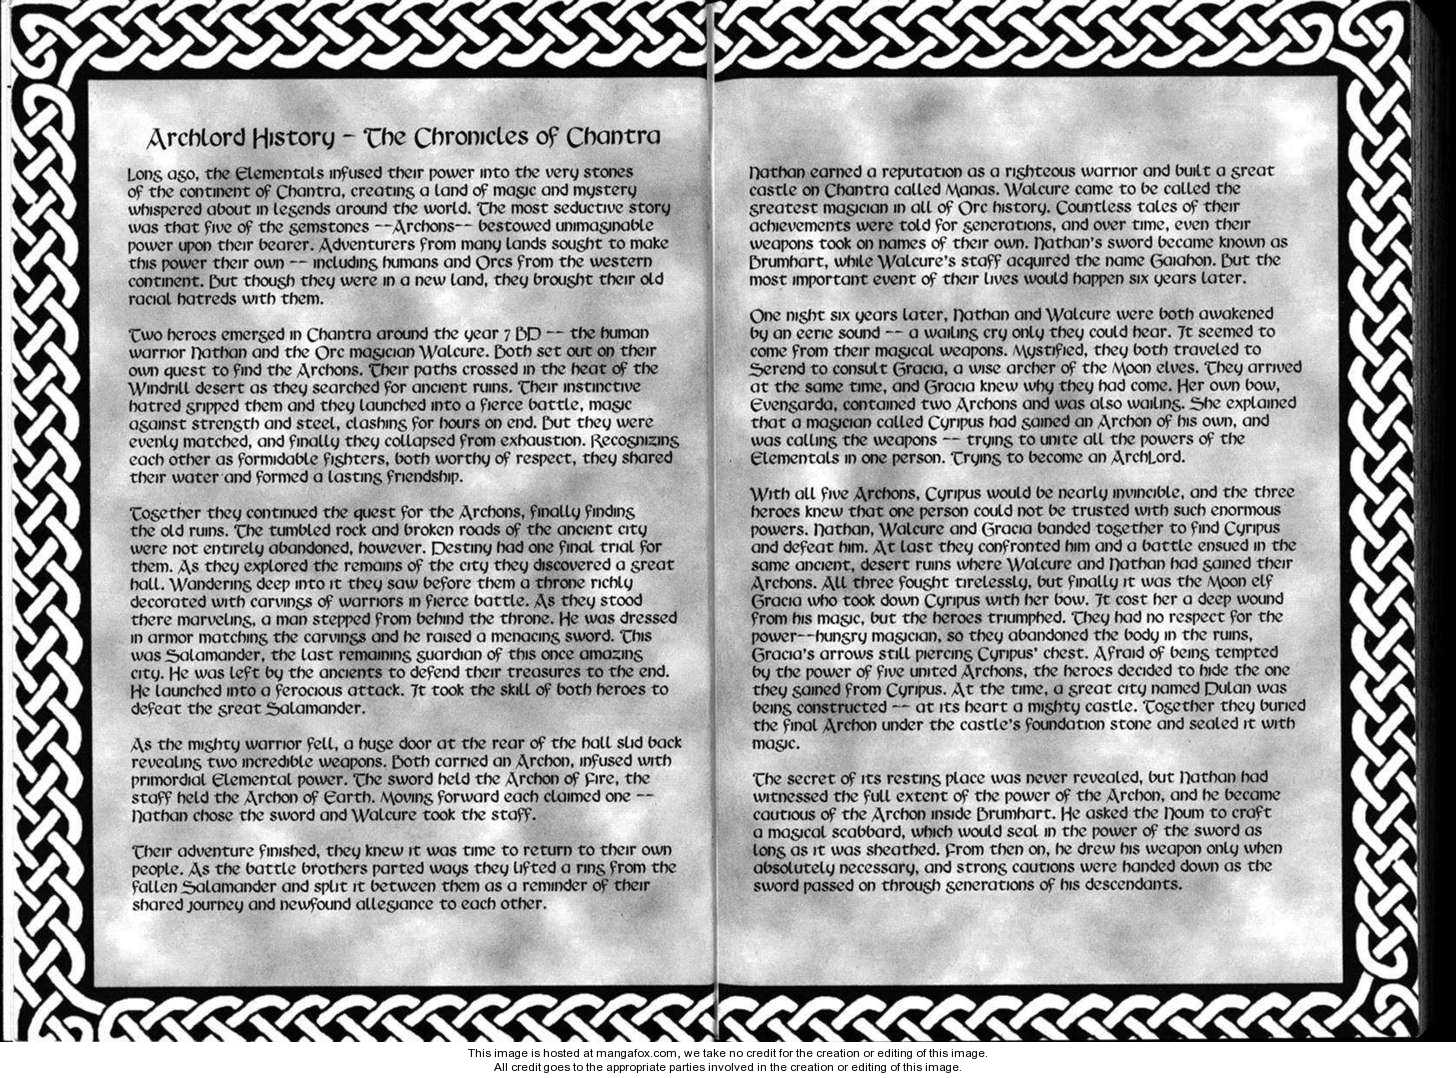 Archlord History - The Chronicles of Chantra
Long ago, the Elementals infused their power into the very stones
of the continent of Chantra, creating a land of magic and mystery
whispered about in legends around the world. The most seductive story
was that five of the gemstones --Archons-- bestowed unimaginable
power upon their bearer. Adventurers from many lands sought to make
this power their own -- including humans and Orcs from the western
continent. But though they were in a new land, they brought their old
racial hatreds with them.
Two heroes emerged in Chantra around the year 7 BD -- the human
warrior Nathan and the Orc magician Walcure. Both set out on their
own quest to find the Archons. Their paths crossed in the heat of the
Windrill desert as they searched for ancient ruins. Their instinctive
hatred gripped them and they launched into a fierce battle, magic
against strength and steel, clashing for hours on end. But they were
evenly matched, and finally they collapsed from exhaustion. Recognizing
each other as formidable fighters, both worthy of respect, they shared
their water and formed a lasting friendship.
Together they continued the quest for the Archons, finally finding
the old ruins. The tumbled rock and broken roads of the ancient city
were not entirely abandoned, however. Destiny had one final trial for
them. As they explored the remains of the city they discovered a great
hall. Wandering deep into it they saw before them a throne richly
decorated with carvings of warriors in fierce battle. As they stood
there marveling, a man stepped from behind the throne. He was dressed
in armor matching the carvings and he raised a menacing sword. This
was Salamander, the last remaining guardian of this once amazing
city. He was left by the ancients to defend their treasures to the end.
He launched into a ferocious attack. It took the skill of both heroes to
defeat the great Salamander.
As the mighty warrior fell, a huge door at the rear of the hall slid back
revealing two incredible weapons. Both carried an Archon, infused with
primordial Elemental power. The sword held the Archon of Fire, the
staff held the Archon of Earth. Moving forward each claimed one --
Nathan chose the sword and Walcure took the staff.
Their adventure finished, they knew it was time to return to their own
people. As the battle brothers parted ways they lifted a ring from the
fallen Salamander and split it between them as a reminder of their
shared journey and newfound allegiance to each other.
Nathan earned a reputation as a righteous warrior and built a great
castle on Chantra called Manas. Walcure came to be called the
greatest magician in all of Orc history. Countless tales of their
achievements were told for generations, and over time, even their
weapons took on names of their own. Nathan's sword became known as
Brumhart, while Walcure's staff acquired the name Gaiahon. But the
most important event of their lives would happen six years later.
One night six years later, Nathan and Walcure were both awakened
by an eerie sound -- a wailing cry only they could hear. It seemed to
come from their magical weapons. Mystified, they both traveled to
Serend to consult Gracia, a wise archer of the Moon elves. They arrived
at the same time, and Gracia knew why they had come. Her own bow,
Evengarda, contained two Archons and was also wailing. She explained
that a magician called Cyripus had gained an Archon of his own, and
was calling the weapons -- trying to unite all the powers of the
Elementals in one person. Trying to become an ArchLord.
With all five Archons, Cyripus would be nearly invincible, and the three
heroes knew that one person could not be trusted with such enormous
powers. Nathan, Walcure and Gracia banded together to find Cyripus
and defeat him. At last they confronted him and a battle ensued in the
same ancient, desert ruins where Walcure and Nathan had gained their
Archons. All three fought tirelessly, but finally it was the Moon elf
Gracia who took down Cyripus with her bow. It cost her a deep wound
from his magic, but the heroes triumphed. They had no respect for the
power--hungry magician, so they abandoned the body in the ruins,
Gracia's arrows still piercing Cyripus' chest. Afraid of being tempted
by the power of five united Archons, the heroes decided to hide the one
they gained from Cyripus. At the time, a great city named Dulan was
being constructed -- at its heart a mighty castle. Together they buried
the final Archon under the castle's foundation stone and sealed it with
magic.
The secret of its resting place was never revealed, but Nathan had
witnessed the full extent of the power of the Archon, and he became
cautious of the Archon inside Brumhart. He asked the Noum to craft
a magical scabbard, which would seal in the power of the sword as
long as it was sheathed. From then on, he drew his weapon only when
absolutely necessary, and strong cautions were handed down as the
sword passed on through generations of his descendants.
This image is hosted at mangafox.com, we take no credit for the creation or editing of this image.
All credit goes to the appropriate parties involved in the creation or editing of this image.